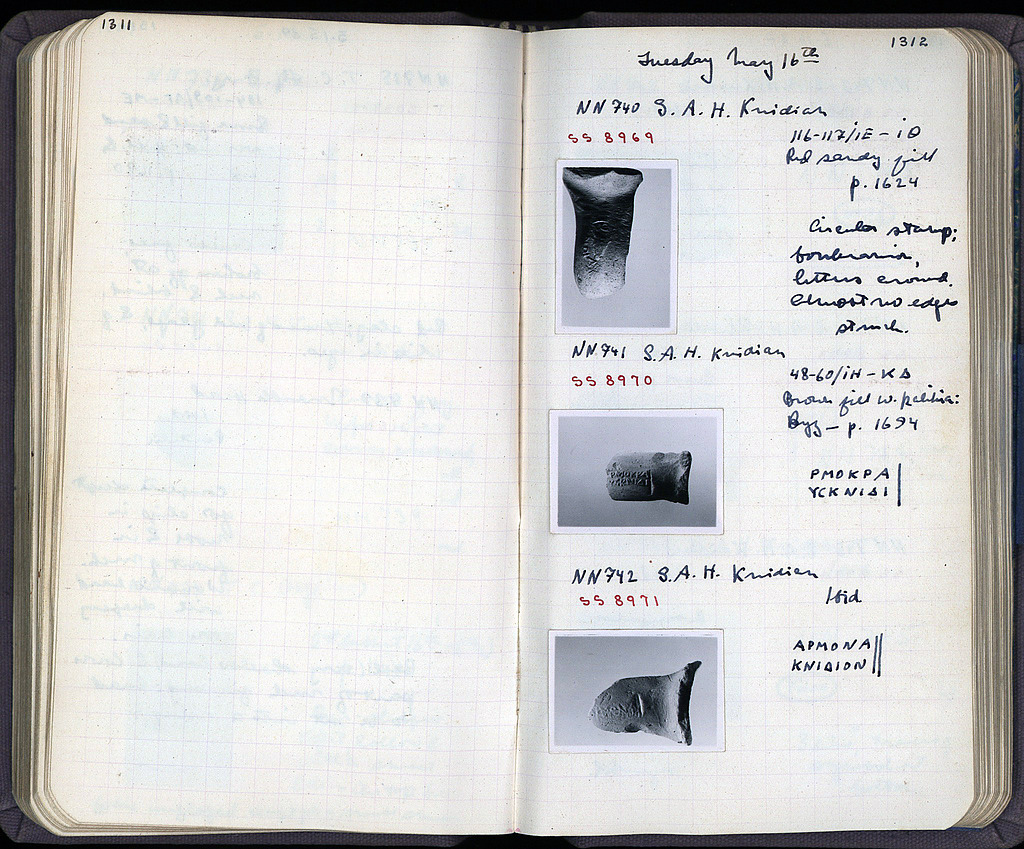 1311
1312
Tuesday May 16th
NN 740 S.A.H. Knidian
SS 8969
116-117/ΙΕ-ΙΘ
Red sandy fill
p. 1624
Circular stamp;
letters crowd.
Almost no edges
struck.
NN 741 S.A.H. Knidian
SS 8970
48-60/ΙΗ-ΚΔ
Brown fill w.
Byz - p. 1694
ΡΜΟΚΡΑ
ΥϹΚΝΙΔΙ
NN 742 S.A.H. Knidian
SS 8971
Ibid
ΑΡΜΟΝΑ
ΚΝΙΔΙΟΝ